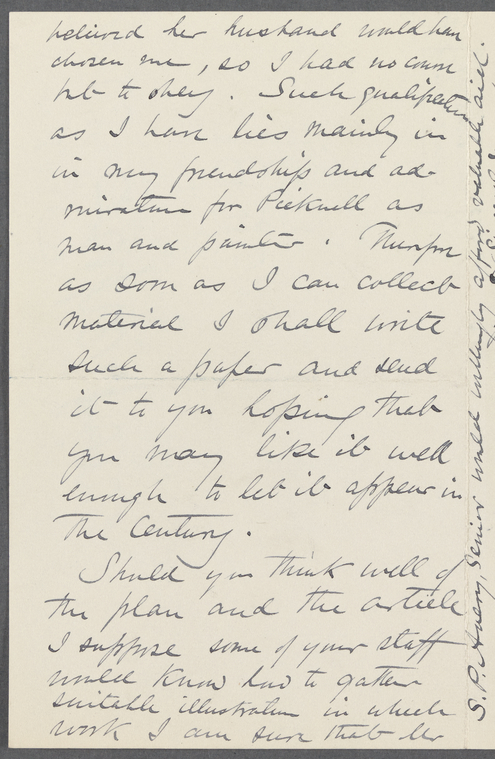 believed her husband would have
chosen me, so I had no course
but to obey. Such qualification
as I have lies mainly in
in my friendship and ad-
miration for Picknell as
man and painter. Therefore
as soon as I can collect
material I shall write
such a paper and send
it to you hoping that
you may like it well
enough to let it appear in
The Century.
Should you think well of
the plan and the article
I suppose some of your staff
would know how to gather
suitable illustration in which
work I am sure that
S. P. Avery, Senior would willingly afford valuable aid.